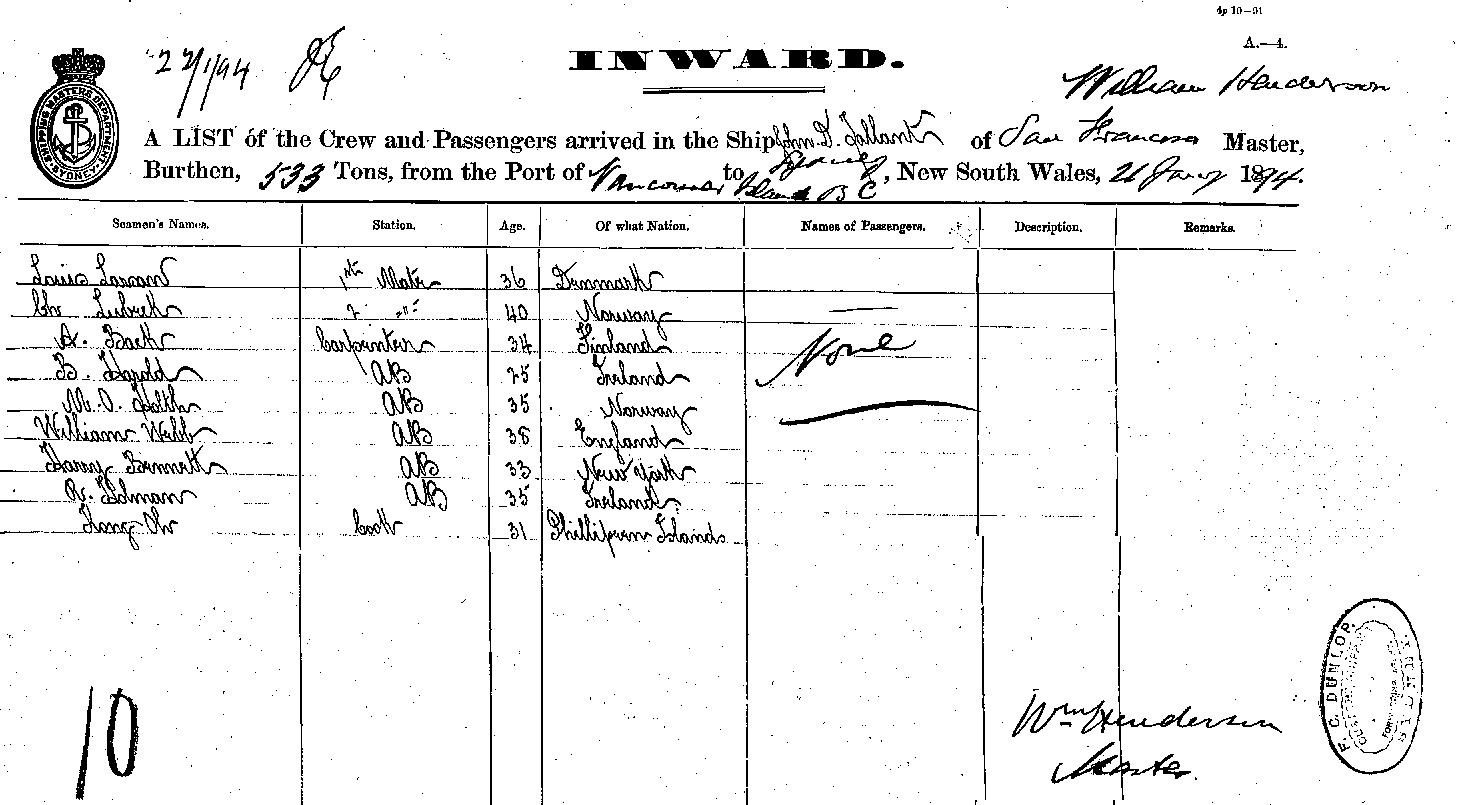 4p 10—91
A.—4.
22/1/94
INWARD.
William Henderson
SHIPPING MASTERS DEPARTMENT SYDNEY
A LIST of the Crew and Passengers arrived in the Ship John D. Tallant of San Francisco Master,
Burthen, 533 Tons, from the Port of Vancouver Island B C to Sydney, New South Wales, 21 Jany 1894.
Seamen's Names. Station. Age. Of what Nation. Names of Passengers. Description. Remarks.
Louis Larson 1st Mate 36 Denmark
Chr Lubrek 2 " 40 Norway
A. Back Carpenter 34 Finland None
B. Harold AB 25 Ireland
M. O. AB 35 Norway
William Webb AB 38 England
Harry Bennett AB 33 New York
R. AB 35 Ireland
Cook 31 Phillipern Islands
10
Wm Henderson
Master.
F. C. DUNLOP.
SYDNEY